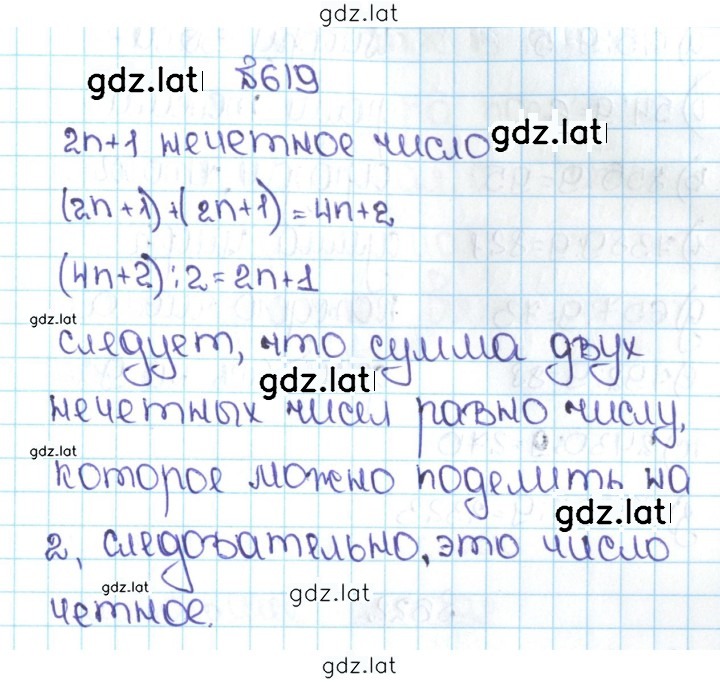 gdz.lat
gdz.lat №619
2n+1 нечетное число gdz.lat
(2n+1)+(2n+1)=4n+2
(4n+2):2=2n+1
gdz.lat
следует, что сумма двух
gdz.lat
нечетных чисел равно числу,
gdz.lat
которое можно поделить на
gdz.lat
2, следовательно, это число
gdz.lat gdz.lat
четное.
gdz.lat